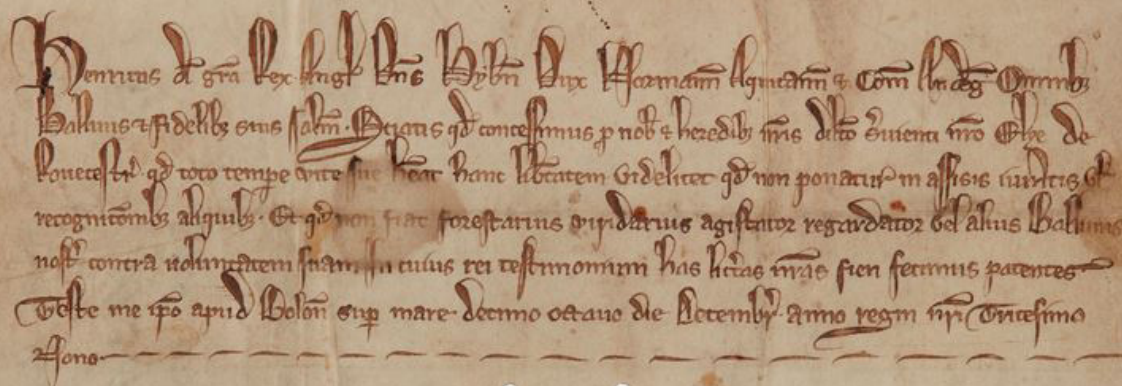 Henricus di gra Rex Angl Dns Hybn Dux Normann Aquitann & Com Andeg Omnibz
Balliuis & fidelibz suis saltm. Sciatis qd concessimus p nob & heredibz nris dilco seruienti nro Elye de
Rouecestr qd toto tempe vite sue heat hanc libtatem videlicet qd non ponatur in assisis iuratis vl
recognicoibz aliquibz. Et qd non fiat forestarius viridarius agistator regardator vel alius Balliuus
nost contra voluntatem suam In cuius rei testimonium has litteras nras fieri fecimus patentes
Teste me ipo apud Bolon sup mare decimo octauo die Decembr anno regni nri Tricesimo
Nono